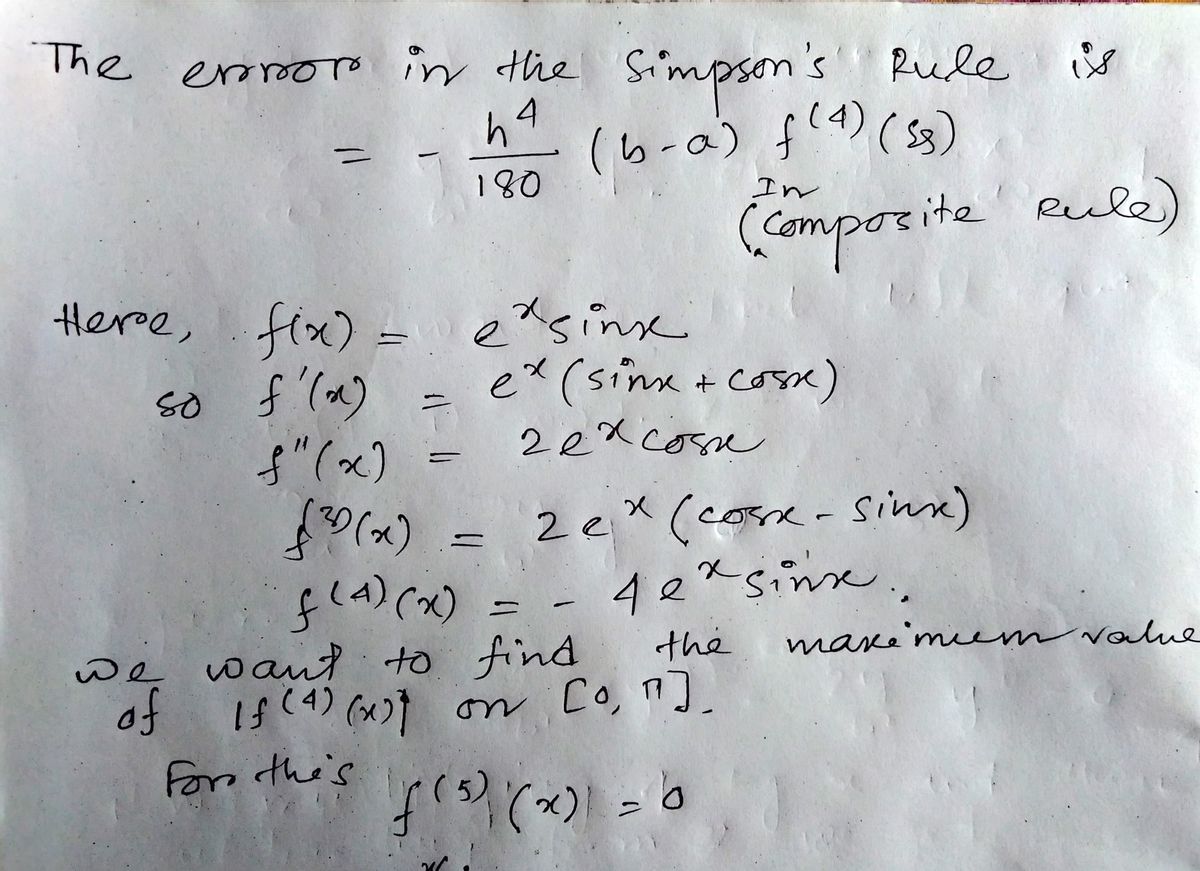 The error in the Simpson's Rule is
= - h^4/180 (b-a) f^(4) (ξs)
(In Composite Rule)
Here, f(x) = e^x sinx
so f'(x) = e^x (sinx + cosx)
f''(x) = 2e^x cosx
f^(3)(x) = 2e^x (cosx - sinx)
f^(4)(x) = - 4e^x sinx.
we want to find the maximum value
of |f^(4)(x)| on [0, π].
For this f^(5)(x) = 0